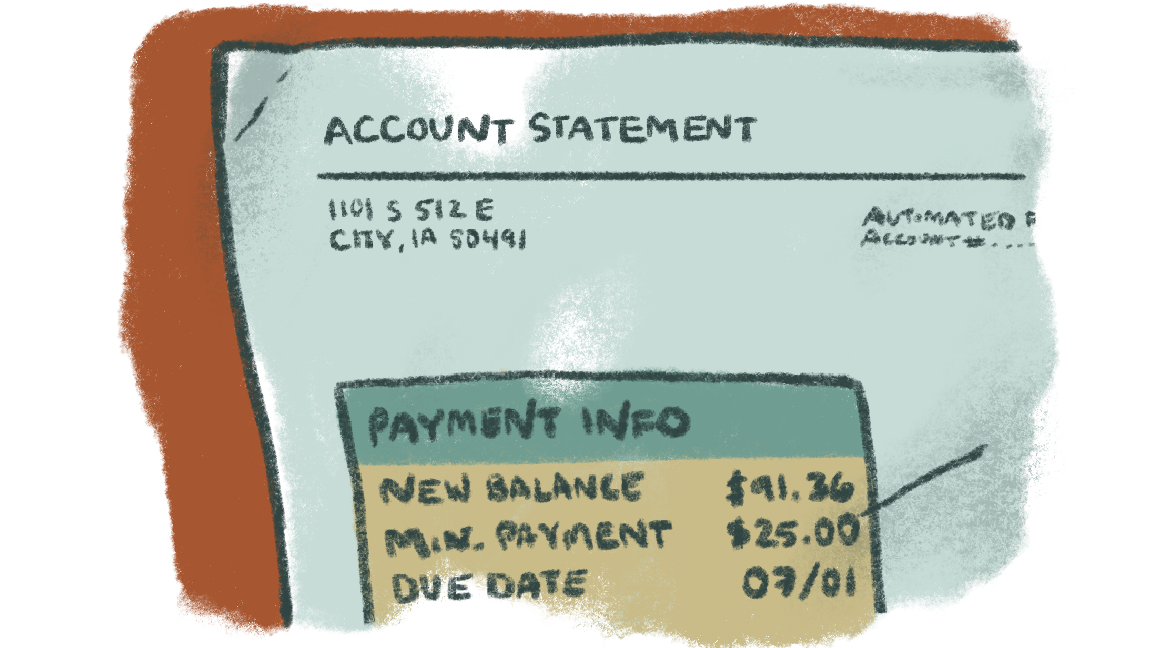 ACCOUNT STATEMENT
1101 S 512 E
CITY, IA 50491
AUTOMATED
ACCOUNT #....
PAYMENT INFO
NEW BALANCE $91.36
MIN. PAYMENT $25.00
DUE DATE 07/01